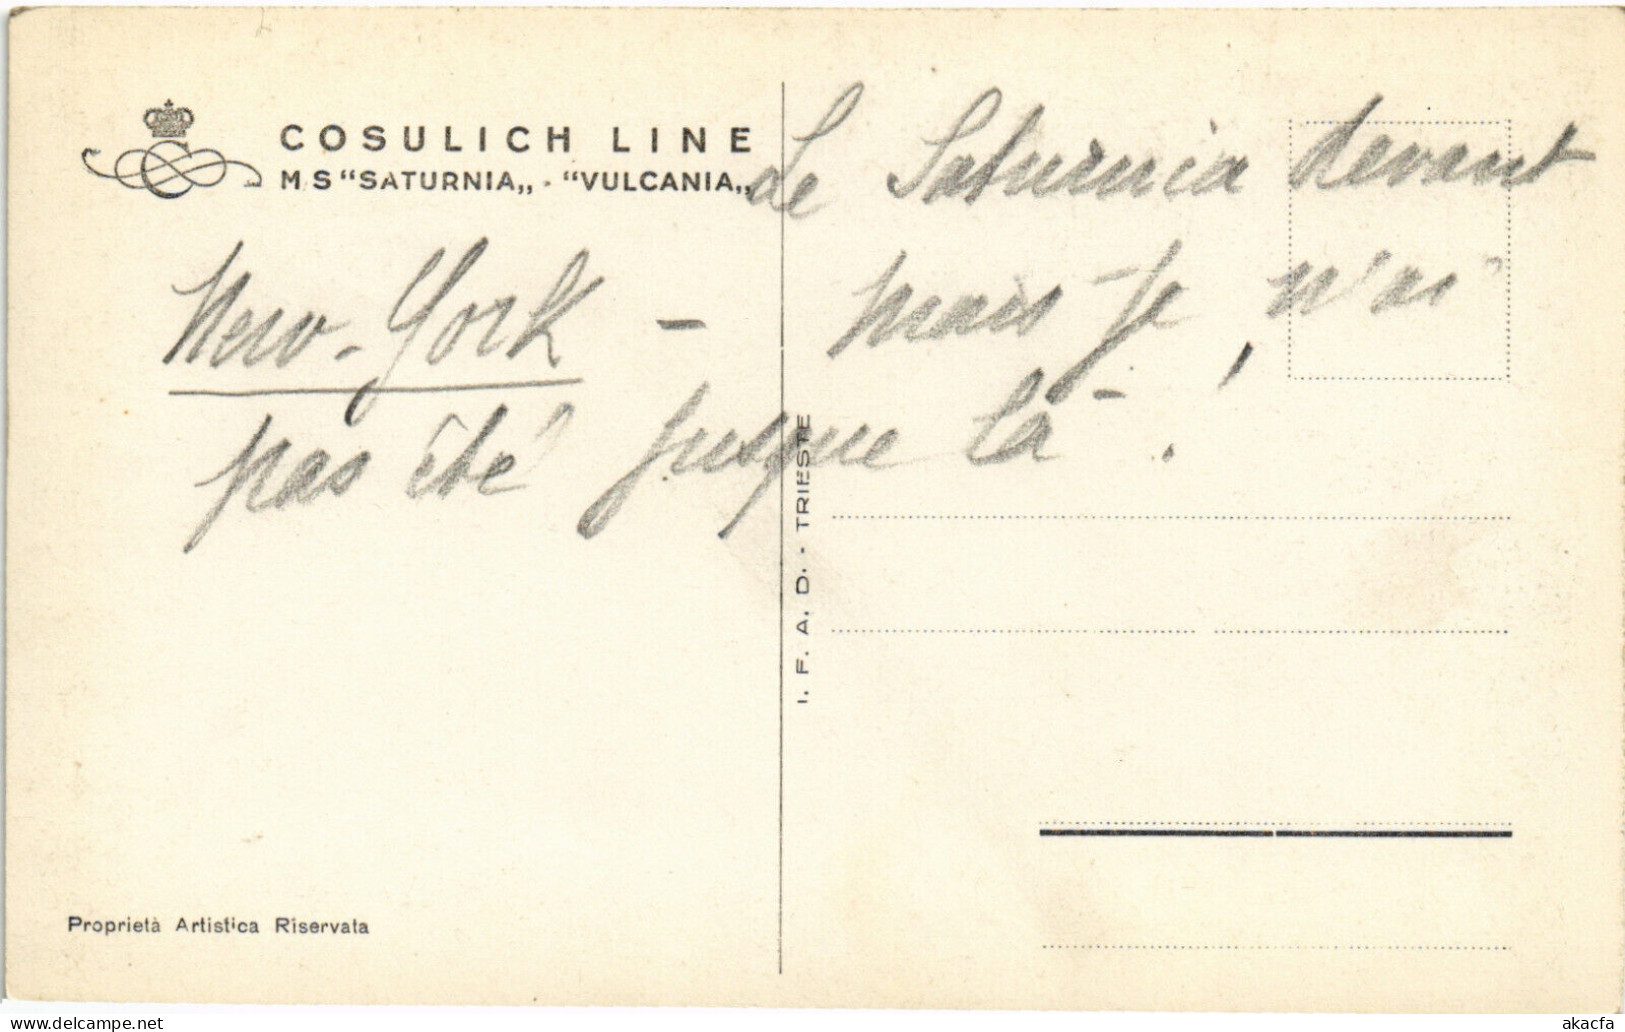 COSULICH LINE
M S “SATURNIA„ - “VULCANIA„
Le Saturnia devant
New-York - mais je n'ai
pas été jusque là.
I. F. A. D. - TRIESTE
Proprietà Artistica Riservata
www.delcampe.net
akacfa